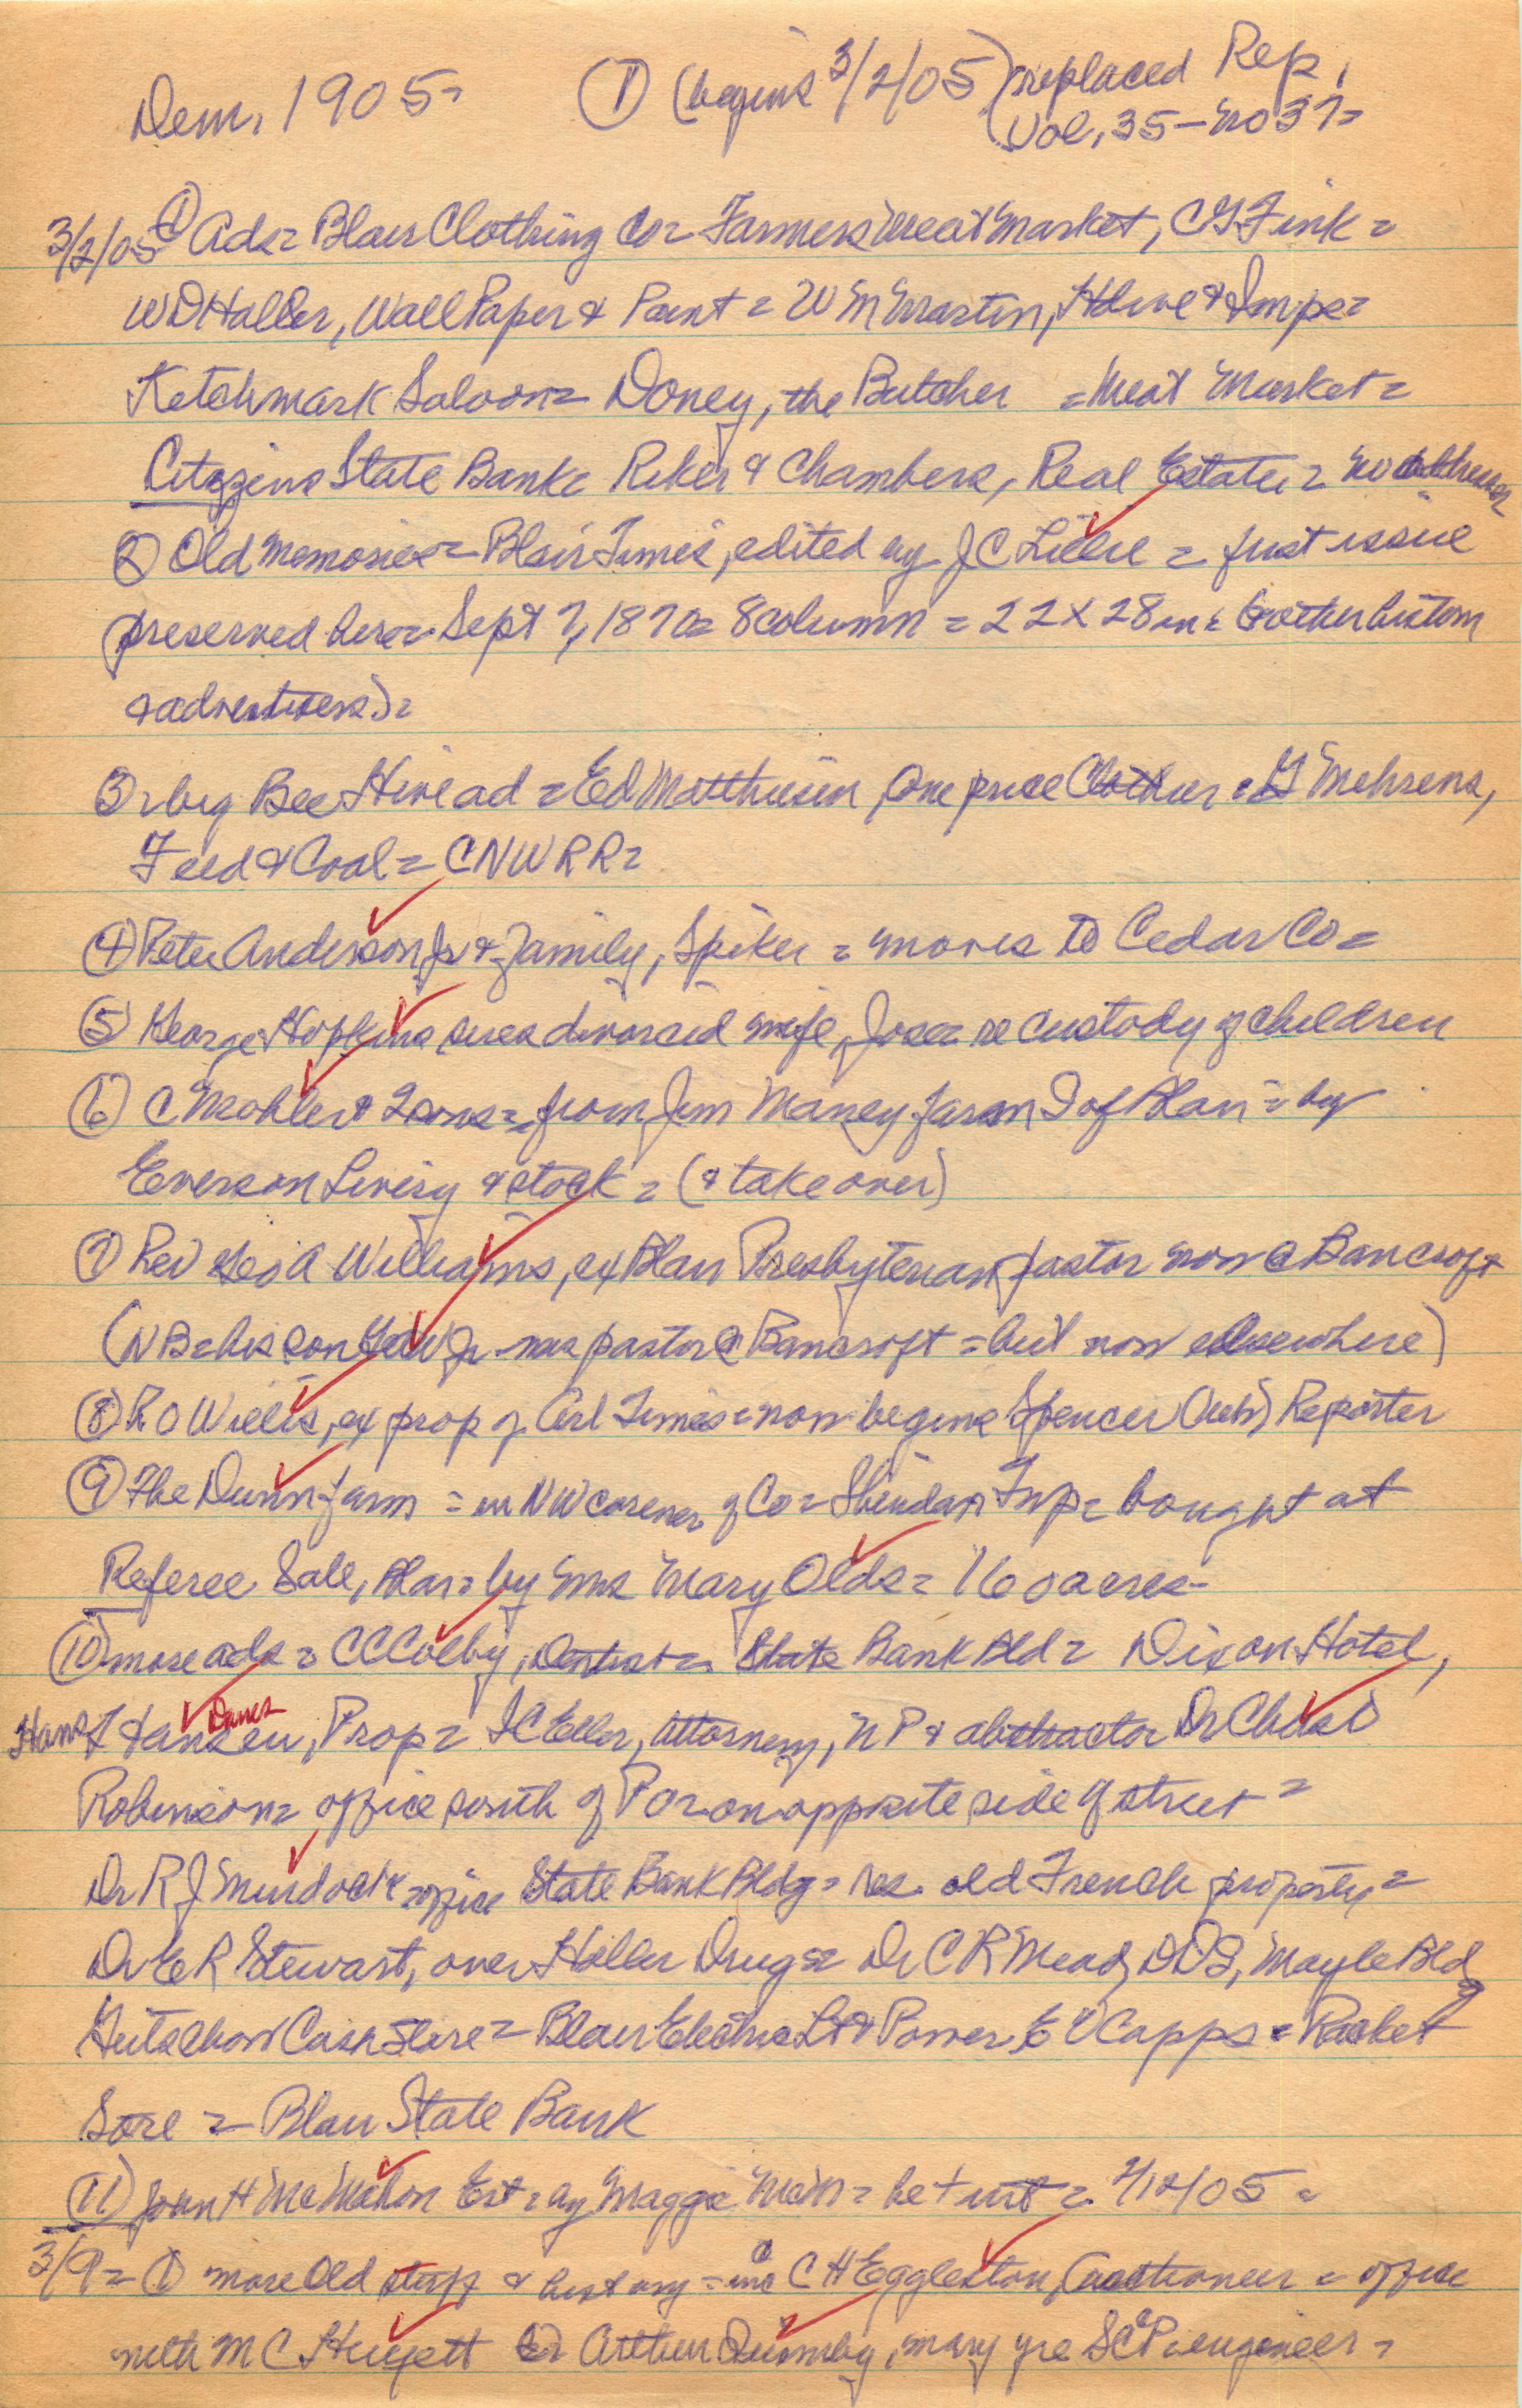 Dem. 1905= ① (begins 3/2/05) (replaced Rep.
Vol. 35 - No 37=
3/2/05 ① Ads= Blair Clothing Co= Farmers Meat Market, C G Fink =
W D Haller, Wall Paper & Paint = W M Martin, Hdwe & Imps=
Ketchmark Saloon= Doney, the Butcher = Meat Market =
Citizens State Bank= Riker & Chambers, Real Estate = no addresses
② Old Memories = Blair Times, edited by J C Lillie = first issue
preserved here= Sept 7, 1870= 8 column = 22 x 28 in =
& advertisers) =
③ big Bee Hive ad = Ed Matthiesen, One price Clothier = G Mehrens,
Feed & Coal = C N W R R =
④ Peter Anderson Jr & family, Spiker = moves to Cedar Co =
⑤ George Hopkins sues divorced wife, Jose= re custody of children
⑥ C Mohler & 2 sons = from Jim Maney farm S of Blair = buy
Everson Livery & stock = (& take over)
⑦ Rev Geo A Williams, ex Blair Presbyterian pastor now @ Bancroft
(NB= his son Geo W Jr was pastor @ Bancroft = but now elsewhere)
⑧ R O Willis, ex prop of Arl Times = now begins Spencer (Neb) Reporter
⑨ The Dunn farm = in NW corner of Co = Sheridan Twp= bought at
Referee Sale, Blair= by Mrs Mary Olds = 160 acres-
⑩ more ads = C C Colby, Dentist = State Bank Bld = Dixon Hotel,
Hans Hansen, Prop = I C Eller, Attorney, N P & abstractor Dr Chas O
Robinson= office south of P O= on opposite side of street =
Dr R J Murdock = office State Bank Bldg = res old French property =
Dr E R Stewart, over Haller Drugs= Dr C R Mead, DDS, Mayle Bldg
Gutschow Cash Store = Blair Electric Lt & Power E V Capps = Racket
Sore = Blair State Bank
⑪ John H McMahon Est = by Maggie McM =
3/9= ① more Old stuff & history = C H Eggleston, Auctioneer = office
with M C Arthur Quimby, many yrs engineer =